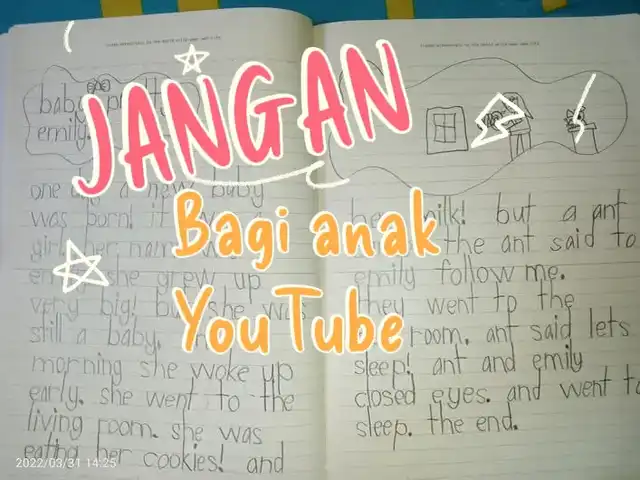 JANGAN
Bagi anak
YouTube
baby
emily.
one a new baby
was born! it
girl her
she grew up
very big! she was
still a baby.
morning she woke up
early. she went to the
living room. she was
eating her cookies! and
milk! but a ant
the ant said to
emily follow me.
they went to the
room. ant said lets
sleep! ant and emily
closed eyes. and went to
sleep. the end.
2022/03/31 14:25